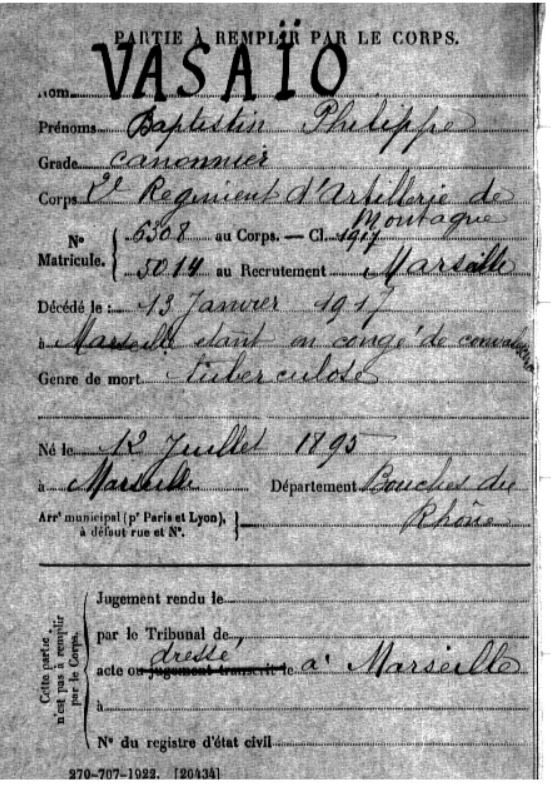 PARTIE À REMPLIR PAR LE CORPS.
Nom VASAÏO
Prénoms Baptistin Philippe
Grade canonnier
Corps 2e Regiment d'Artillerie de
Montagne
N° Matricule. { 6308 au Corps. — Cl. 1917
5014 au Recrutement Marseille
Décédé le : 13 Janvier 1917
à Marseille etant en congé de convalescence
Genre de mort tuberculose
Né le 12 Juillet 1895
à Marseille Département Bouches du
Rhône
Arrt municipal (pr Paris et Lyon), }
à défaut rue et N°.
Cette partie n'est pas à remplir par le Corps.
Jugement rendu le
par le Tribunal de
dressé
acte ou jugement transcrit le a' Marseille
à
N° du registre d'état civil
270-707-1922. [20434]